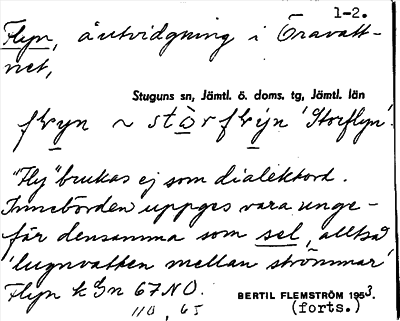 1-2.
Flyn, åutvidgning i Övavatt-
net,
Stuguns sn, Jämtl. ö. doms. tg, Jämtl. län
flyn ~ stòrflýn 'Storflyn'.
"Fly" brukas ej som dialektord.
Innebörden uppges vara unge-
fär densamma som sel, alltså
'lugnvatten mellan strömmar'
Flyn k Gn 67 NO.
BERTIL FLEMSTRÖM 1953.
110, 65
(forts.)